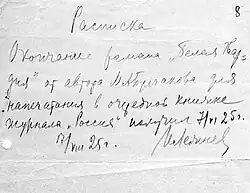 8
Расписка
Окончание романа „Белая Гвар-
дия" от автора М. Булгакова для
напечатания в очередной книжке
журнала „Россия" получил 7/VI 25 г.
7/VIII 25 г. И. Лежнев